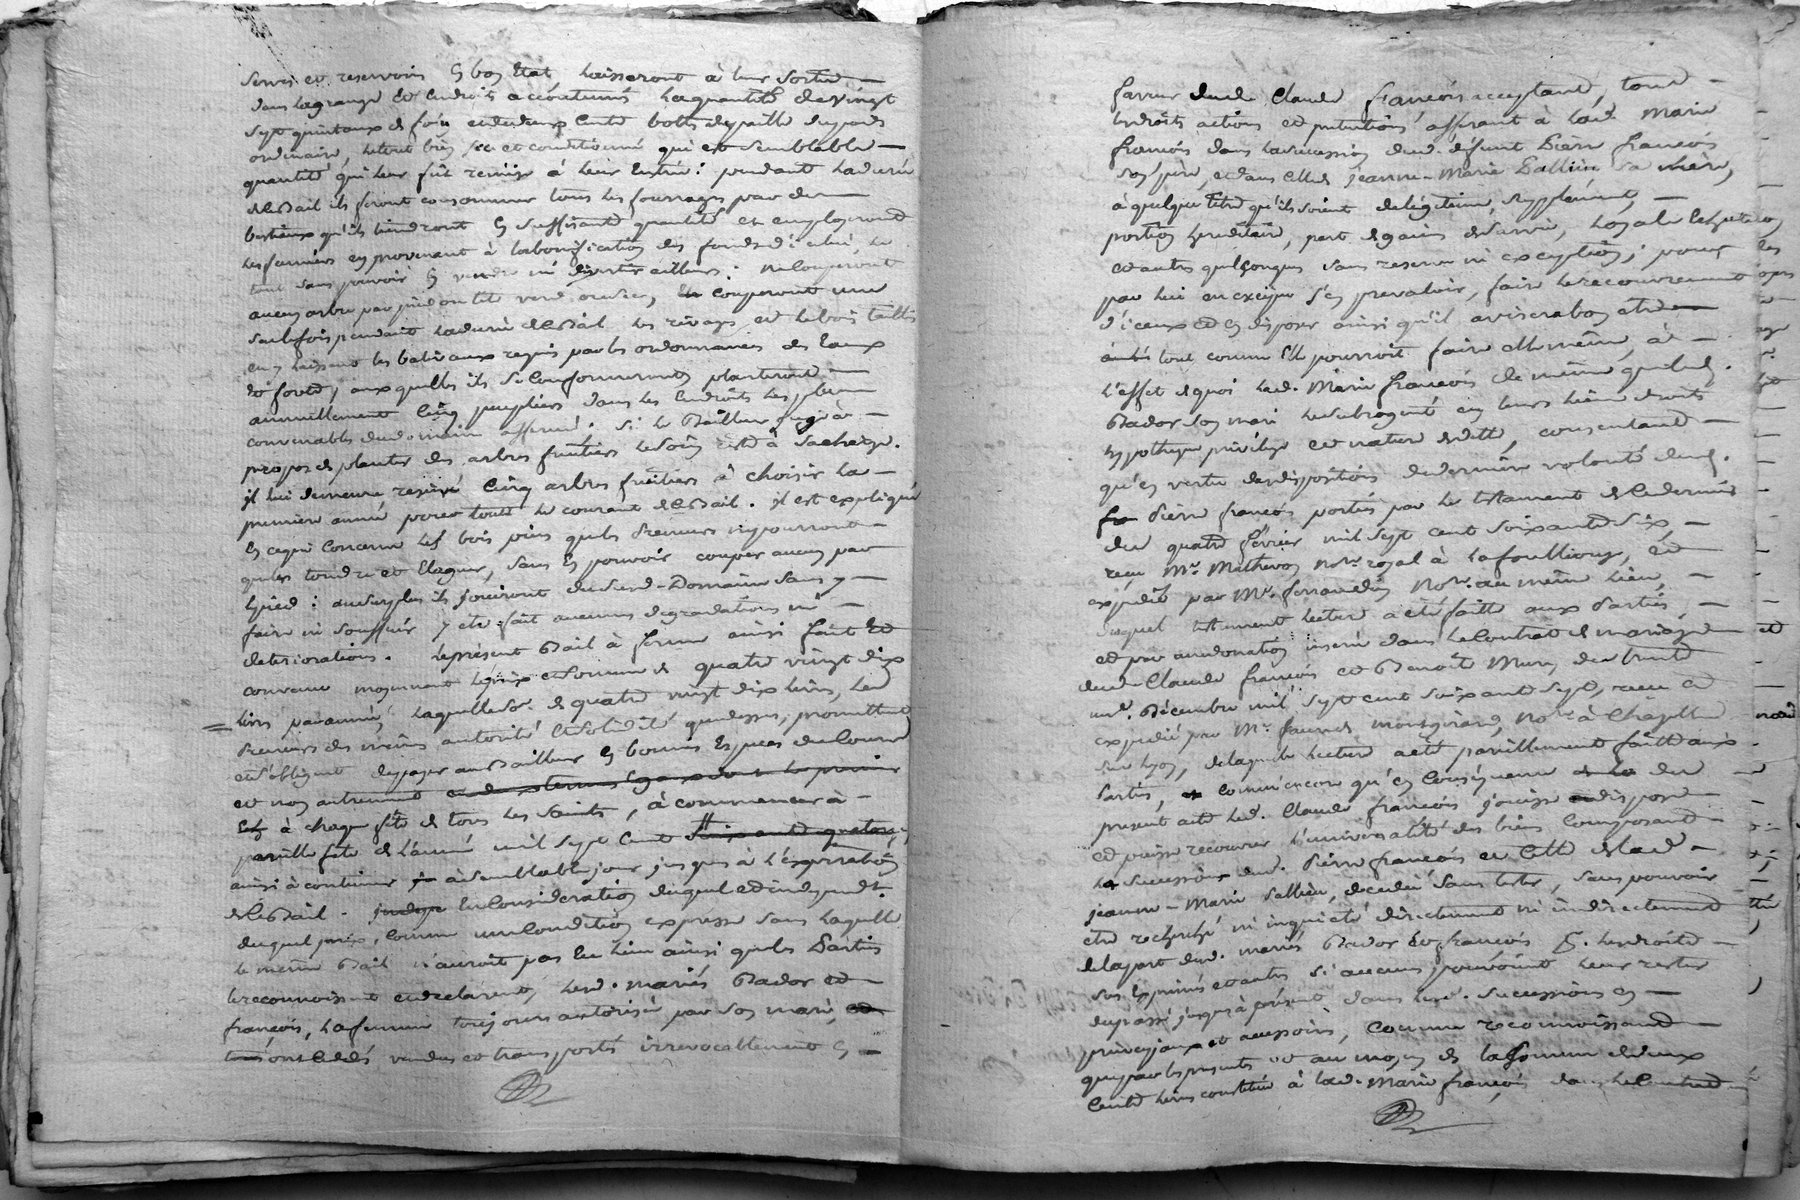 serves et reservoirs en bon Etat laisseront à leur sortie
dans la grange et endroits accoutumés la quantité de vingt
sept quintaux de foin et de deux cents bottes de paille du poids
ordinaire, le tout bien sec et conditionné qui est semblable
quantité qui leur fut remise à leur Entrée: pendant la durée
de ce Bail ils feront consommer tous les fourrages par des
bestiaux qu'ils tiendront en suffisante quantité et employeront
les fumiers en provenant à la bonification des fonds d'icelui, le
tout sans pouvoir en vendre ni divertir ailleurs: ne couperont
aucun arbre par pied ou tête verd ou sec, couperont une
seule fois pendant la durée de ce Bail les rivages et le bois taillis
en y laissant les baliveaux requis par les ordonnances des Eaux
et forets, auxquelles ils se conformeront, planteront
annuellement cinq peupliers dans les Endroits les plus
convenables du domaine affermé. si le Bailleur juge à
propos de planter des arbres fruitiers le soin reste à sa charge.
il lui demeure reservé cinq arbres fruitiers à choisir la
premiere année pour tout le courant de ce Bail. il est expliqué
en ce qui concerne les bois pins que les Preneurs n'y pourront
que tondre et Elaguer, sans en pouvoir couper aucun par
pied: au surplus ils jouiront dudit Domaine sans y
faire ni souffrir y etre fait aucunes degradations ni
deteriorations. le présent Bail à ferme ainsi fait et
convenu moyennant le prix et somme de quatre vingt dix
livres par année, laquelle so. de quatre vingt dix livres, les
Preneurs des mêmes autorité et solidité que dessus, promettent
et s'obligent de payer au Bailleur en bonnes Especes du Cours
et non autrement et en deux termes Egaux dont le premier
à chaque fête de tous les Saints, à commencer à
pareille fete de l'année mil sept cent soixante quatorze
ainsi à continuer à semblable jour jusques à l'expiration
de ce Bail. En Consideration duquel et independt.
du quel prix, comme une Condition expresse sans laquelle
le même Bail n'auroit pas Eu lieu ainsi que les Parties
le reconnoissent et declarent, lesd. mariés Bador et
françois, la femme toujours autorisée par son mari, et
ont cédés vendus et transportés irrevocablement en
faveur dud. Claude françois acceptant, tous
les droits actions et prétentions afferant à lad. Marie
françois dans la succession dud. defunt Pierre françois
son père, et dans celle de jeanne-Marie Pallier sa mère,
à quelque titre qu'ils soient de légitime, supplement,
portion hereditaire, part de gains de survie,
et autres quelconques sans reserve ni exception; pour
par lui en exciper s'en prevaloir, faire le recouvrement
d'iceux et en disposer ainsi qu'il avisera bon etre
tout comme Elle pourroit faire elle même, à
l'effet de quoi lad. Marie françois de même que led.
Bador son mari le subrogent en leurs lieu droits
hypotheque privilege et nature de dette, consentant
qu'en vertu des dispositions de derniere volonté dud.
Pierre françois portées par le testament de ce dernier
du quatre février mil sept cent soixante six,
reçu Me. Mathevon Nore. royal à la fouillouze, et
expedié par Me. ferrandin Nore. au même Lieu,
duquel testament lecture a été faite aux Parties,
et par une donation inserée dans le Contrat de mariage
dud. Claude françois et Benoite Mury du trente
un Xbre. Décembre mil sept cent soixante sept, reçu et
expedié par Me. Nore. à Chazelles
sur Lyon, de laquelle lecture a été pareillement faite aux
Parties, comme encore qu'en conséquence du
present acte led. Claude françois jouisse dispose
et puisse recouvrer l'universalité des biens Composant
la succession dud. Pierre françois et celle de lad.
jeanne-Marie Pallier, decedée sans tester, sans pouvoir
etre recherché ni inquieté directement ni indirectement
de la part desd. mariés Bador et françois
sus Exprimés et autres si aucuns pouvoint leur rester
du passé jusques à present dans lesd. successions en
principaux et accessoires, comme reconnoissant
que par les presentes et au moyen de la somme de deux
Cents livres constituée à lad. Marie françois dans le Contrat